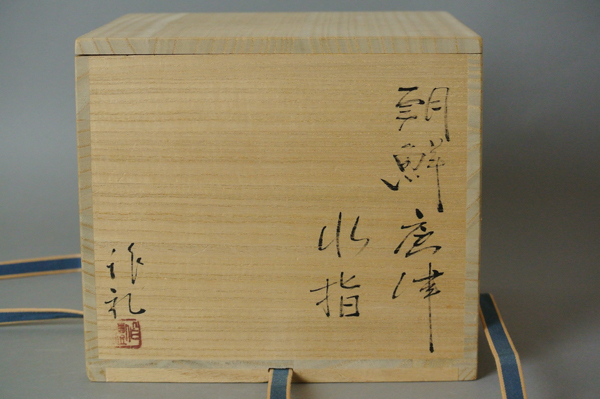 朝鮮唐津
水指
作礼